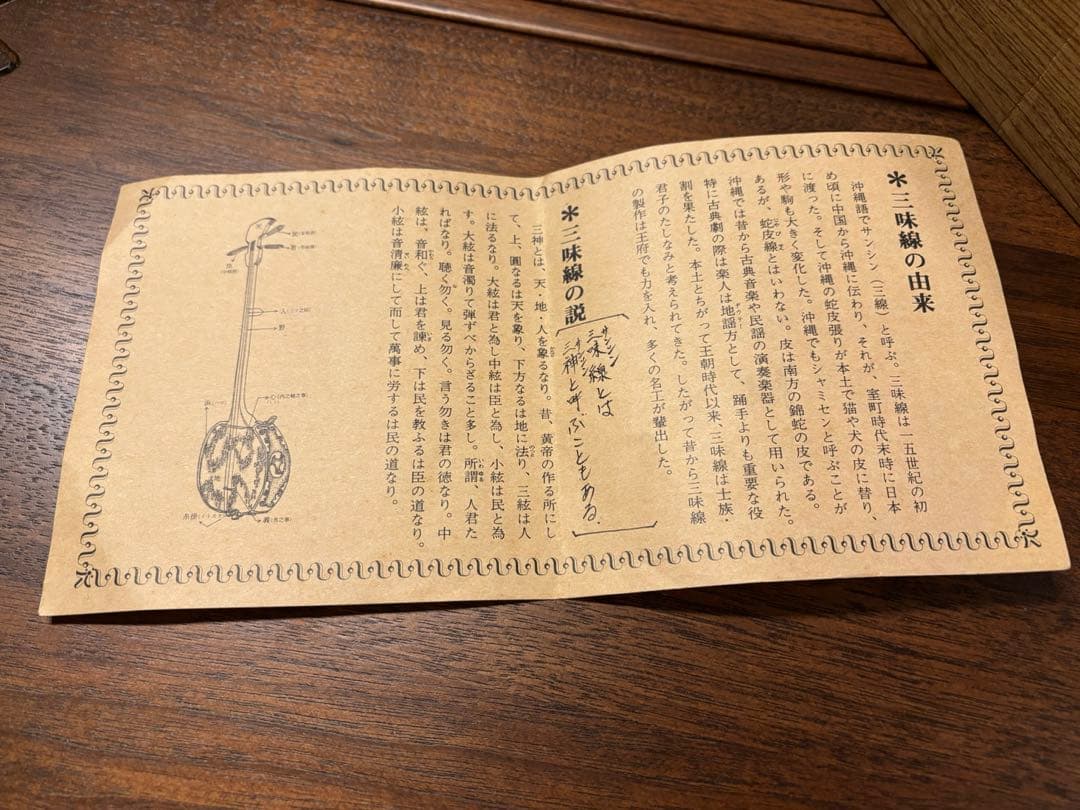 ＊三味線の由来
沖縄語でサンシン（三線）と呼ぶ。三味線は一五世紀の初
め頃に中国から沖縄に伝わり、それが、室町時代末時に日本
に渡った。そして沖縄の蛇皮張りが本土で猫や犬の皮に替り、
形や駒も大きく変化した。沖縄でもシャミセンと呼ぶことが
あるが、蛇皮線とはいわない。皮は南方の錦蛇の皮である。
沖縄では昔から古典音楽や民謡の演奏楽器として用いられた。
特に古典劇の際は楽人は地謡方として、踊手よりも重要な役
割を果た。本土とちがって王朝時代以来、三味線は士族・
君子のたしなみと考えられてきた。したがって昔から三味線
の製作は王府でも力を入れ、多くの名工が輩出した。
＊三味線の説
サンシン
三味線とは
サンシン
三神と呼ぶこともある.
三神とは、天・地・人を象るなり。昔、黄帝の作る所にし
て、上、圓なるは天を象り、下方なるは地に法り、三絃は人
に法るなり。大絃は君と為し中絃は臣と為し、小絃は民と為
す。大絃は音濁りて弾ずべからざること多し。所謂、人君た
ればなり。聴く勿く。見る勿く。言う勿きは君の徳なり。中
絃は、音和ぐ、上は君を諫め、下は民を教ふるは臣の道なり。
小絃は音清廉にして而して萬事に労するは民の道なり。